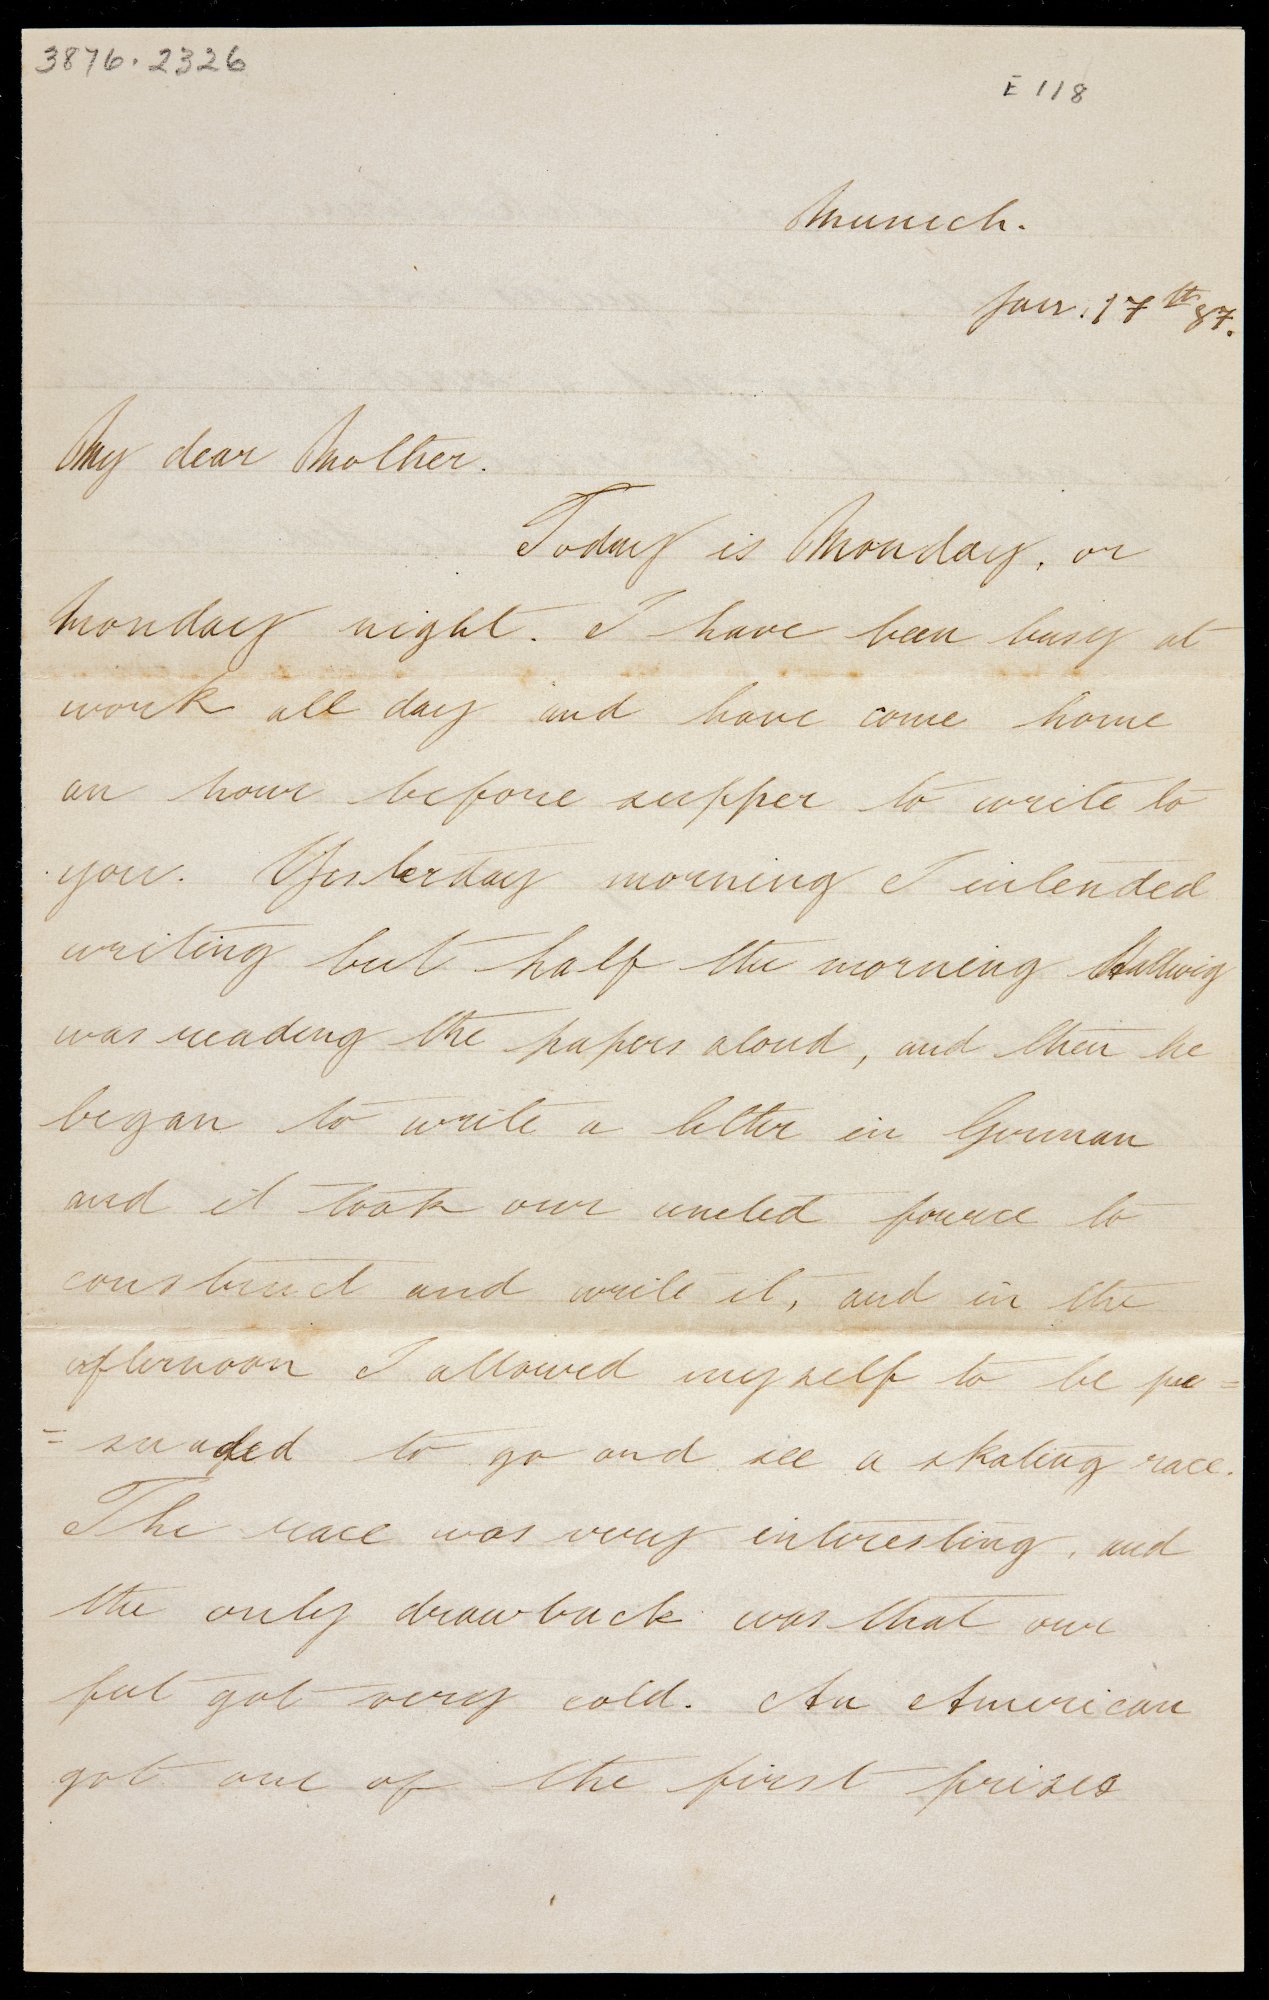 3876.2326
E 118
Munich.
Jan. 17th 87.
My dear Mother.
Today is Monday, or
Monday night. I have been busy at
work all day and have come home
an hour before supper to write to
you. Yesterday morning I intended
writing but half the morning
was reading the papers aloud, and then he
began to write a letter in German
and it took our united fource to
construct and write it, and in the
afternoon I allowed myself to be pe=
=suaded to go and see a skating race.
The race was very interesting, and
the only drawback was that our
feet got very cold. An American
got one of the first prises